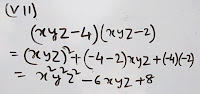 (VII)
(xyz-4)(xyz-2)
= (xyz)² + (-4-2)xyz + (-4)(-2)
= x²y²z² - 6xyz + 8